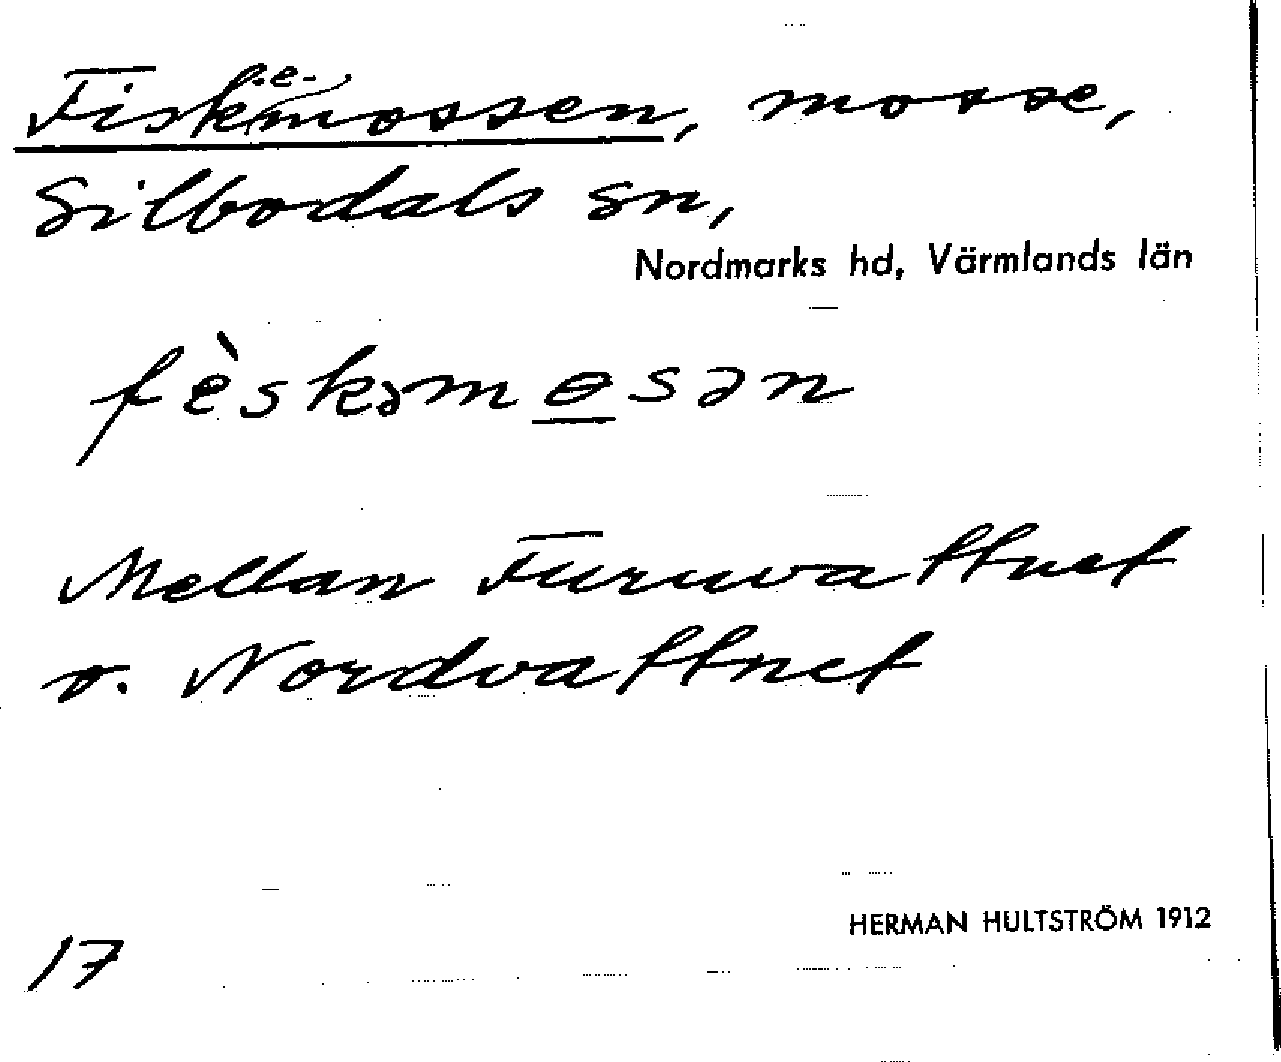 Fiskemossen, mosse,
Silbodals sn,
Nordmarks hd, Värmlands län
fèskəmɵsən
Mellan Furuvattnet
o. Nordvattnet
HERMAN HULTSTRÖM 1912
17